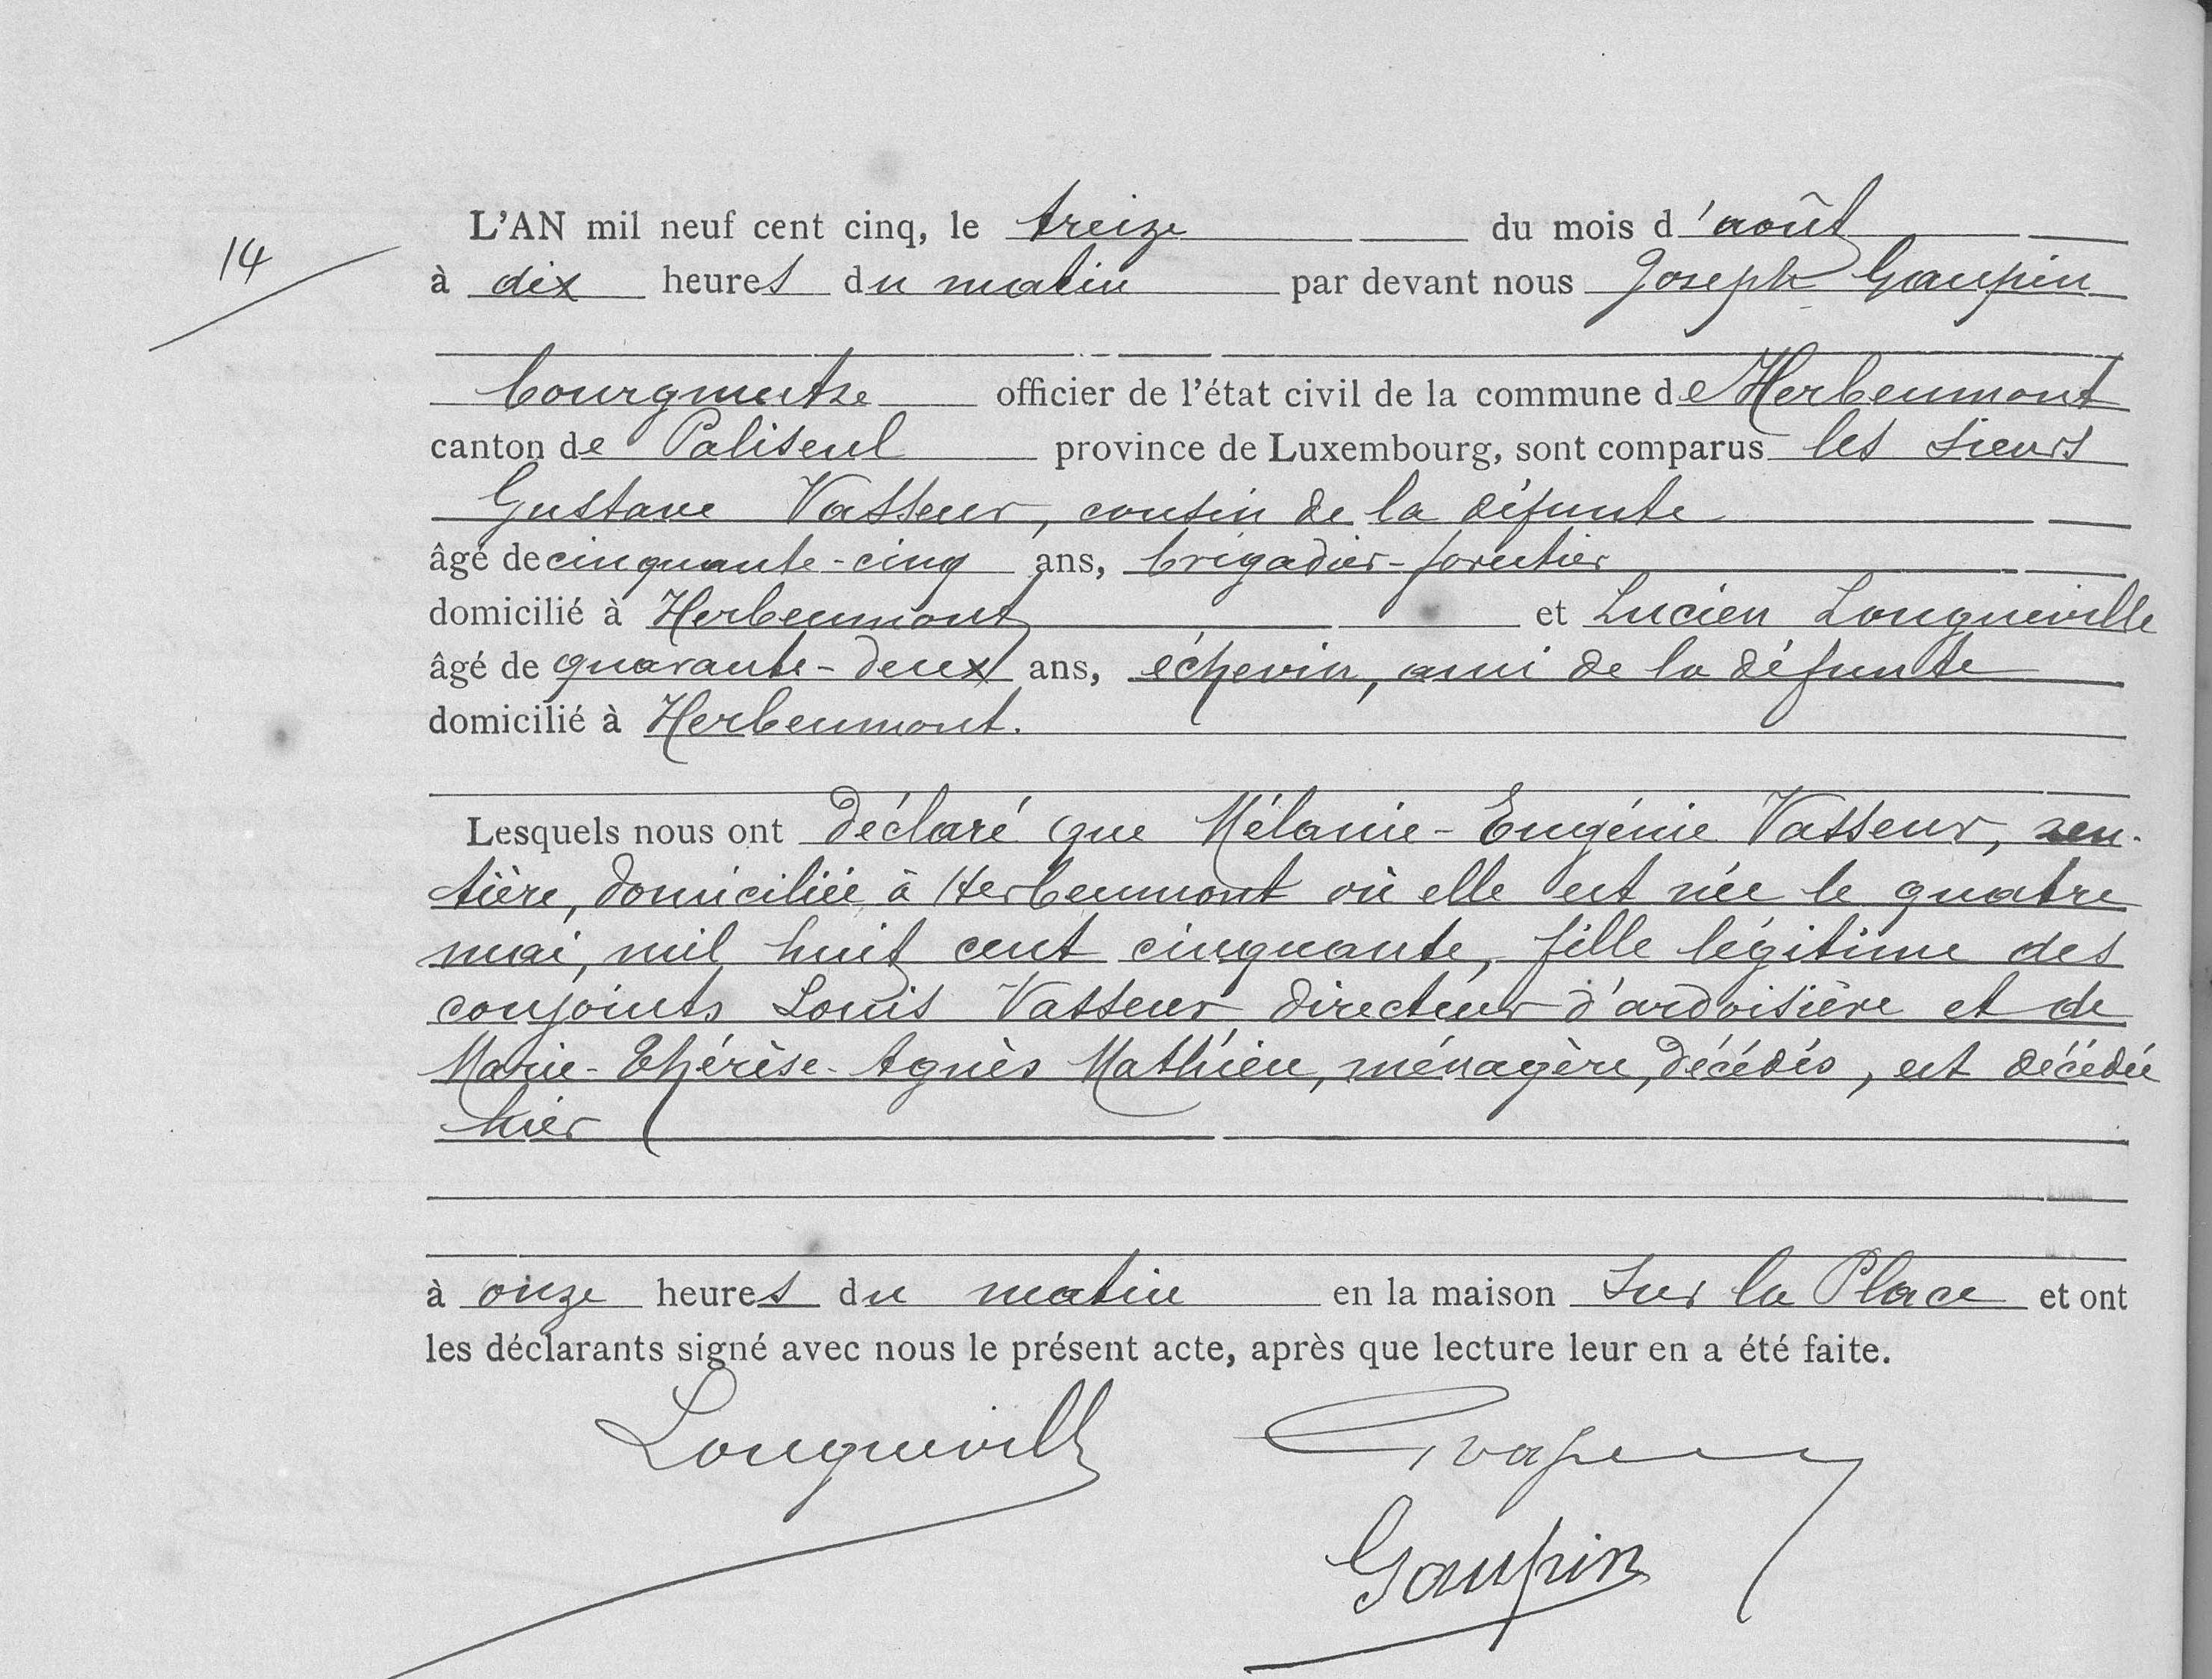 14
L'AN mil neuf cent cinq, le treize du mois d'août
à dix heures du matin par devant nous Joseph Gaupin
bourgmestre officier de l'état civil de la commune de Herbeumont
canton de Paliseul province de Luxembourg, sont comparus les sieurs
Gustave Vasseur, cousin de la défunte
âgé de cinquante-cinq ans, brigadier-forestier
domicilié à Herbeumont et Lucien Longueville
âgé de quarante-deux ans, échevin, ami de la défunte
domicilié à Herbeumont.
Lesquels nous ont déclaré que Mélanie-Eugénie Vasseur, ren-
tière, domiciliée à Herbeumont où elle est née le quatre
mai, mil huit cent cinquante, fille légitime des
conjoints Louis Vasseur directeur d'ardoisière et de
Marie-Thérèse-Agnès Mathieu, ménagère, décédés, est décédée
hier
à onze heures du matin en la maison Sur la Place et ont
les déclarants signé avec nous le présent acte, après que lecture leur en a été faite.
Longueville
Gaupin